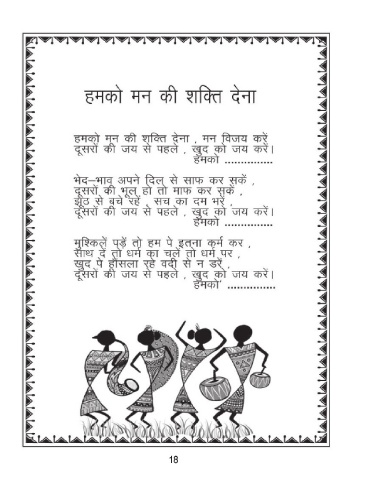 हमको मन की शक्ति देना
हमको मन की शक्ति देना , मन विजय करें
दूसरों की जय से पहले , खुद को जय करें।
हमको ...............
भेद–भाव अपने दिल से साफ कर सकें ,
दूसरों की भूल हो तो माफ कर सकें ,
झूठ से बचे रहें , सच का दम भरें ,
दूसरों की जय से पहले , खुद को जय करें।
हमको ...............
मुश्किलें पड़ें तो हम पे इतना कर्म कर ,
साथ दें तो धर्म का चलें तो धर्म पर ,
खुद पे हौसला रहे वदी से न डरें ,
दूसरों की जय से पहले , खुद को जय करें।
हमको ...............
18